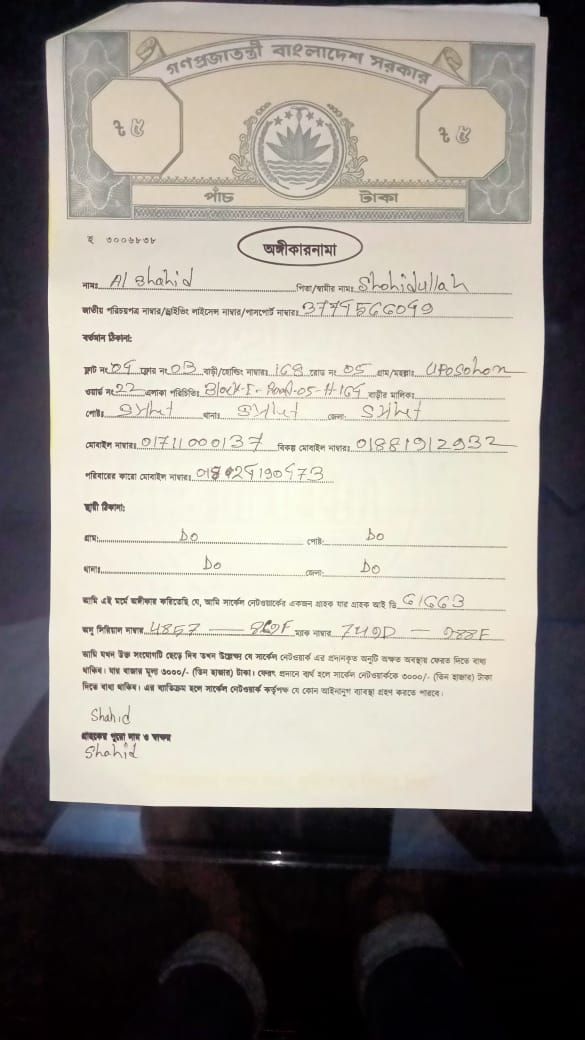 গণপ্রজাতন্ত্রী বাংলাদেশ সরকার
৳ ৫ ৳ ৫
পাঁচ টাকা
হ ৩০০৬৮৩৮
অঙ্গীকারনামা
নামঃ Al Shahid পিতা/স্বামীর নামঃ Shohidullah
জাতীয় পরিচয়পত্র নাম্বার/ড্রাইভিং লাইসেন্স নাম্বার/পাসপোর্ট নাম্বারঃ
বর্তমান ঠিকানা:
ফ্লাট নং ফ্লোর নং 03 বাড়ী/হোল্ডিং নাম্বারঃ রোড নং 05 গ্রাম/মহল্লাঃ Uposohom
ওয়ার্ড নং 22 এলাকা পরিচিতিঃ Block-E- Road-05-H- বাড়ীর মালিকঃ
পোষ্টঃ থানাঃ জেলা:
মোবাইল নাম্বারঃ 01711000137 বিকল্প মোবাইল নাম্বারঃ 01881912932
পরিবারের কারো মোবাইল নাম্বারঃ
স্থায়ী ঠিকানা:
গ্রাম: Do পোষ্ট: Do
থানাঃ Do জেলা: Do
আমি এই মর্মে অঙ্গীকার করিতেছি যে, আমি সার্কেল নেটওয়ার্কের একজন গ্রাহক যার গ্রাহক আই ডি
অনু সিরিয়াল নাম্বার ম্যাক নাম্বার
আমি যখন উক্ত সংযোগটি ছেড়ে দিব তখন উল্লেখ্য যে সার্কেল নেটওয়ার্ক এর প্রদানকৃত অনুটি অক্ষত অবস্থায় ফেরত দিতে বাধ্য
থাকিব। যার বাজার মূল্য ৩০০০/- (তিন হাজার) টাকা। ফেরৎ প্রদানে ব্যর্থ হলে সার্কেল নেটওয়ার্ককে ৩০০০/- (তিন হাজার) টাকা
দিতে বাধ্য থাকিব। এর ব্যতিক্রম হলে সার্কেল নেটওয়ার্ক কর্তৃপক্ষ যে কোন আইনানুগ ব্যবস্থা গ্রহণ করতে পারবে।
Shahid
গ্রাহকের পুরো নাম ও স্বাক্ষর
Shahid